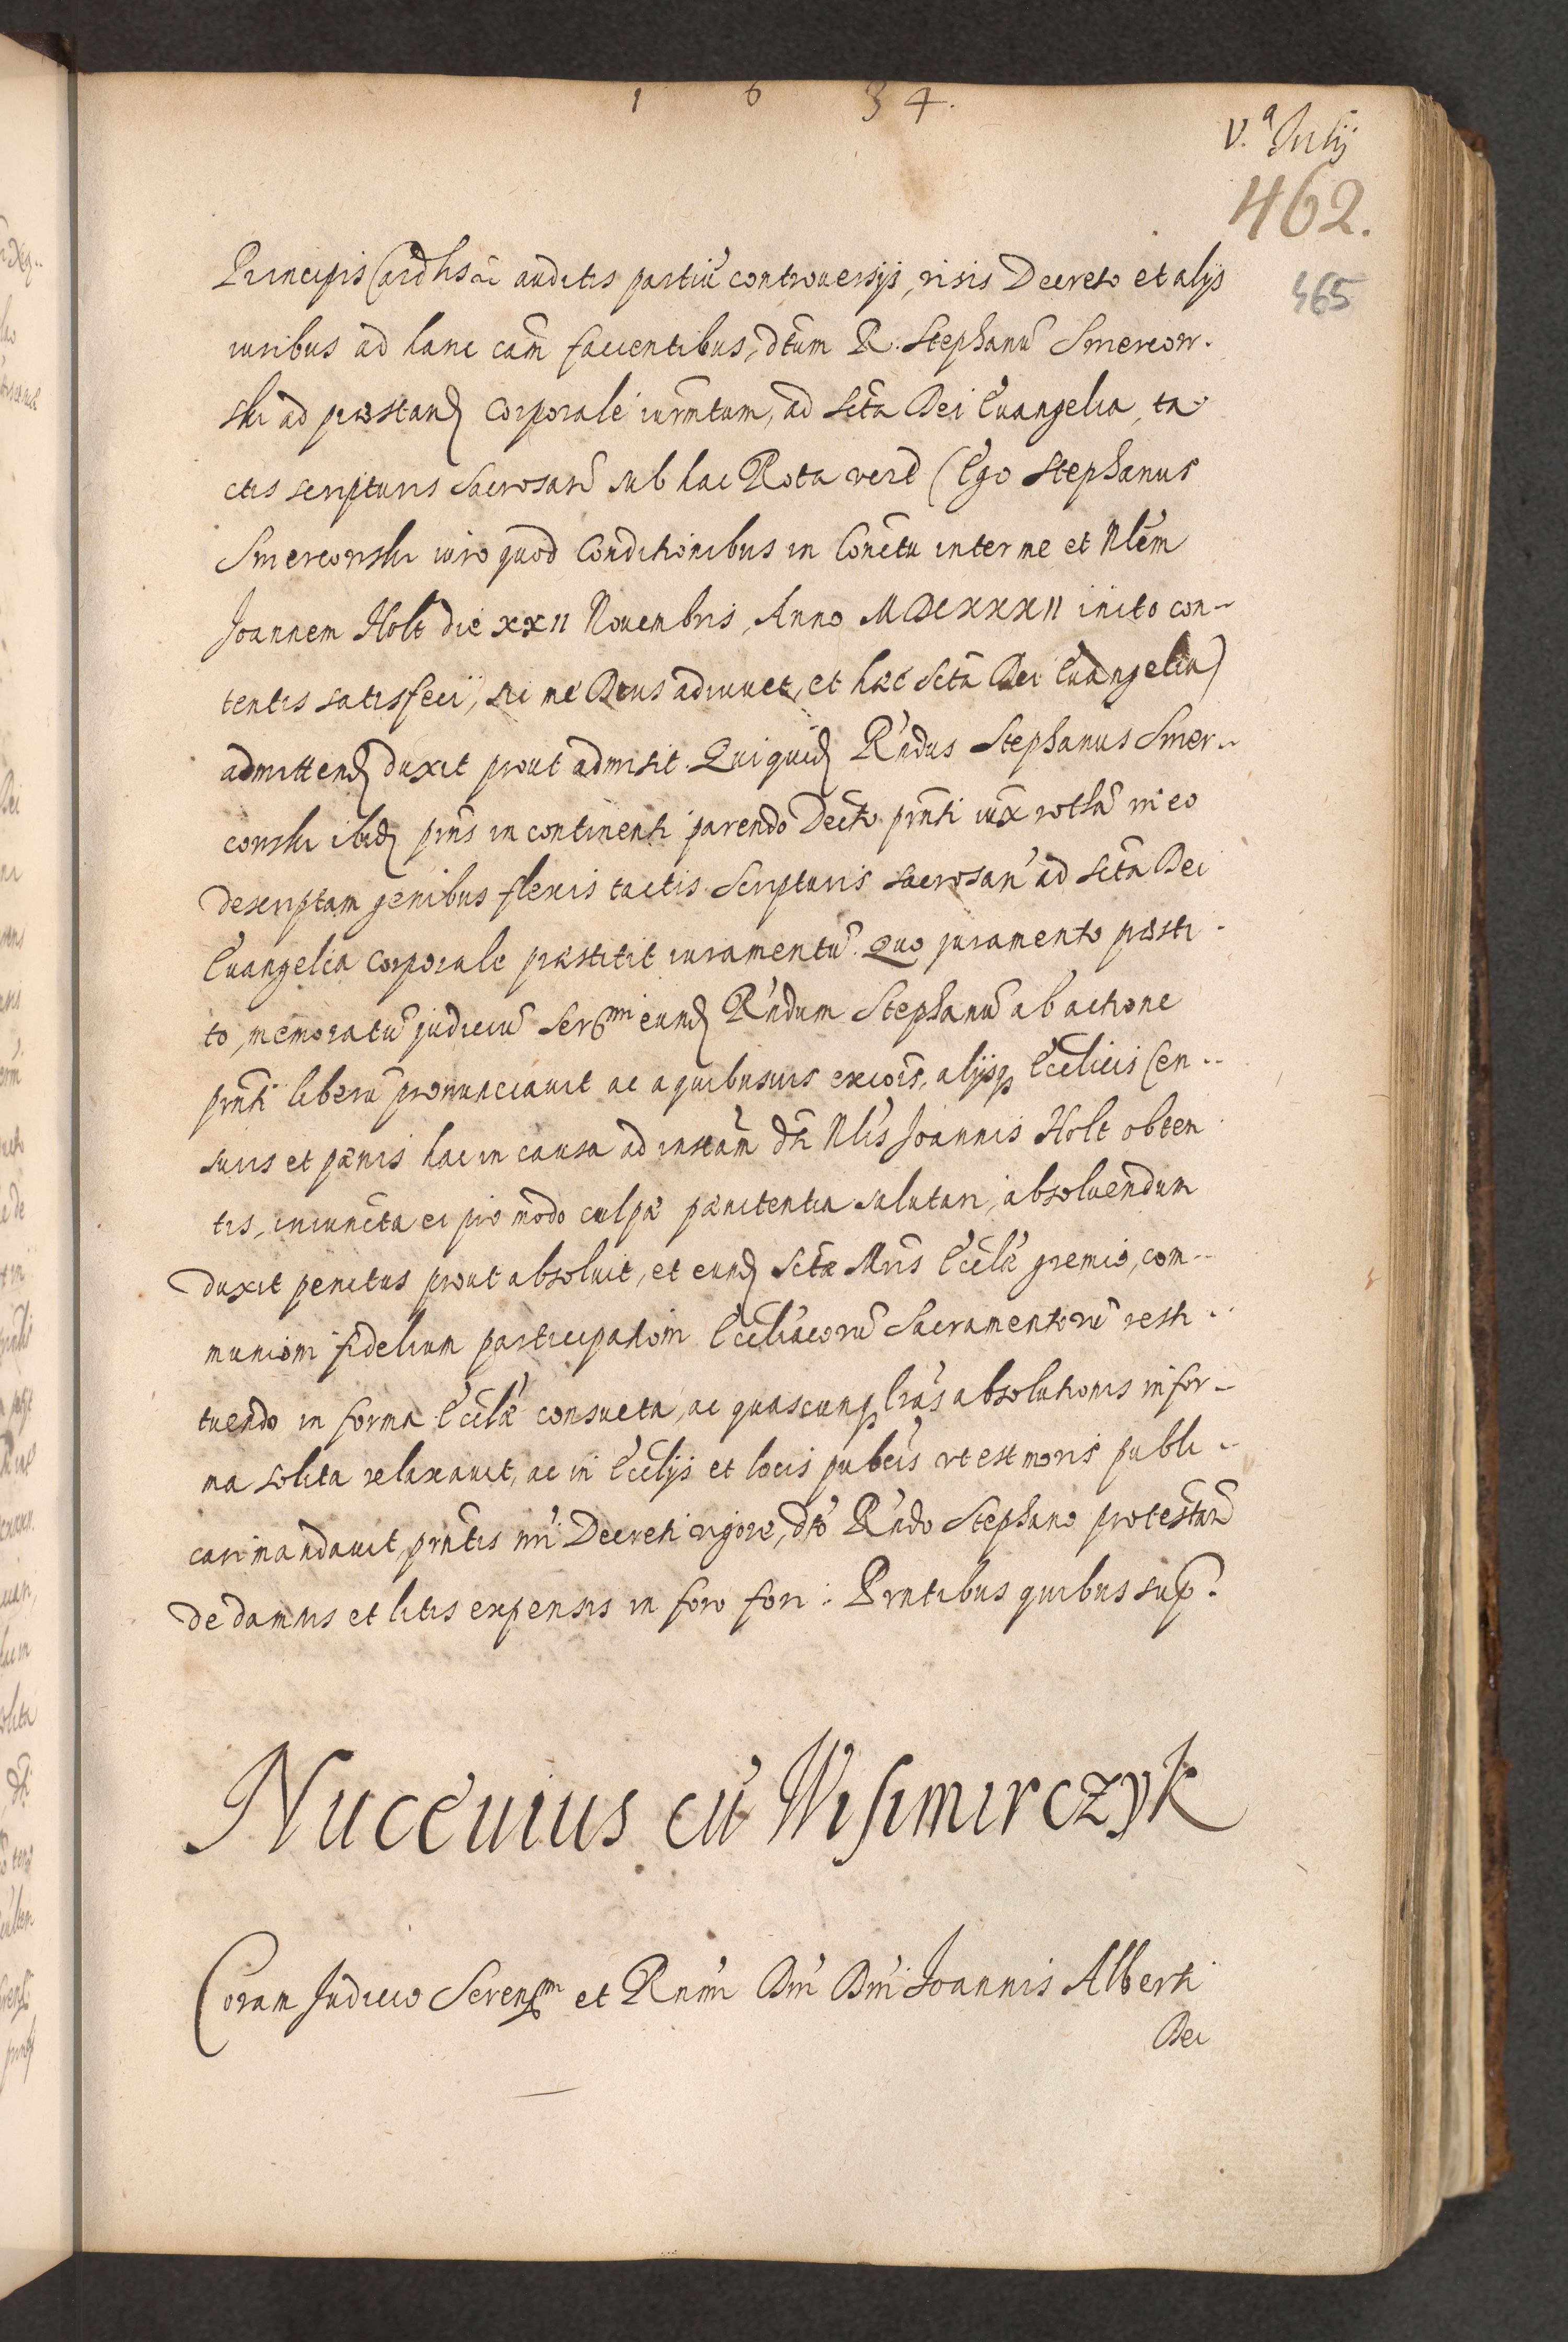 1 6 3 4.
V.ª Julij
462.
465
Principis Cardlis &c̃ auditis partiũ controuersijs, visis Decreto et alijs
iuribus ad hanc cam̃ facientibus, dc̃tum R. Stephanũ Smercow-
ski ad præstand corporalé iurm̃tum, ad Sc̃ta Dei Euangelia, ta-
ctis scripturis Sacrosanc̃ sub hac Rota verb (Ego Stephanus
Smercowski iuro quod Conditionibus in Conc̃tu inter me et Nlẽm
Joannem Holt die XXII Nouembris, Anno MDCXXXII inito con-
tentis satisfeci, sic me Deus adiuuet, et hæc Sc̃ta Dei Euangelia)
admittend duxit prout admisit. Qui quid R̃ndus Stephanus Smer-
cowski ibid pñs in continenti parendo Decr̃to prñti iux̃ rothã in eo
descriptam genibus flexis tactis Scripturis sacrosanc̃ ad Sc̃ta Dei
Euangelia corporale præstitit iuramentũ. Quo juramento præsti-
to, memoratũ judiciũ Ser^mi eund R̃ndum Stephanũ ab actione
prñti liberũ pronunciauit ac a quibusuis excõis, alijsq Ecc̃licis Cen-
suris et pænis hac in causa ad instãm dc̃ti Nlis Joannis Holt obten
tis, iniuncta ei pro modo culpæ pænitentia salutari, absoluendum
duxit penitus prout absoluit, et eund Sc̃tæ Mr̃is Ecc̃læ gremio, com-
munioni fidelium participationi Ecc̃liacorũ Sacramentorũ resti-
tuendo in forma Ecc̃læ consueta, ac quascunq lr̃as absolutionis in for-
ma solita relaxauit, ac in Ecc̃lijs et locis pub̃cis vt est moris publi-
cari mandauit, prñtis nr̃i Decreti vigore, dc̃to R̃ndo Stephano protestañ
de damnis et litis expensis in foro fori. Prñtibus quibus sup̃.
Nuceuius cũ Wisimirczyk
Coram Judicio Seren^mi et Rñmi Dñi Dñi Joannis Alberti
Dei